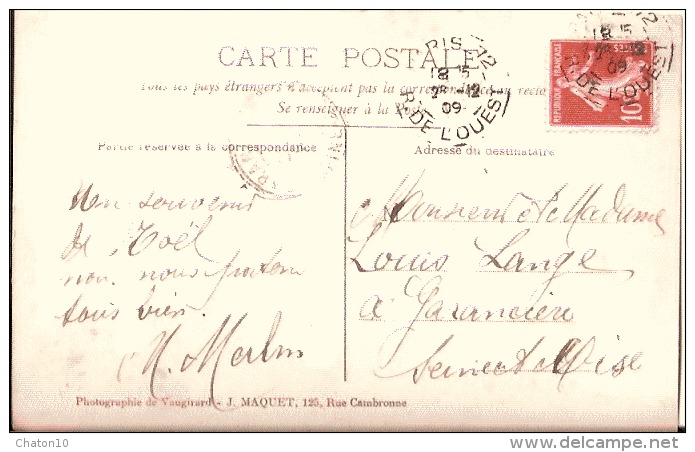 CARTE POSTALE
Tous les pays étrangers n'acceptent pas la correspondance au recto
Se renseigner à la Poste
Partie réservée à la correspondance
Adresse du destinataire
PARIS
18 15
2 12
09
R. DE L'OUEST
REPUBLIQUE FRANÇAISE
POSTES
10
Un souvenir
de Noël
nous
tous bien.
M. Merlin
Monsieur et Madame
Louis Lange
à Garancière
Seine et Oise
Photographie de Vaugirard - J. MAQUET, 125, Rue Cambronne
Chaton10
delcampe.net